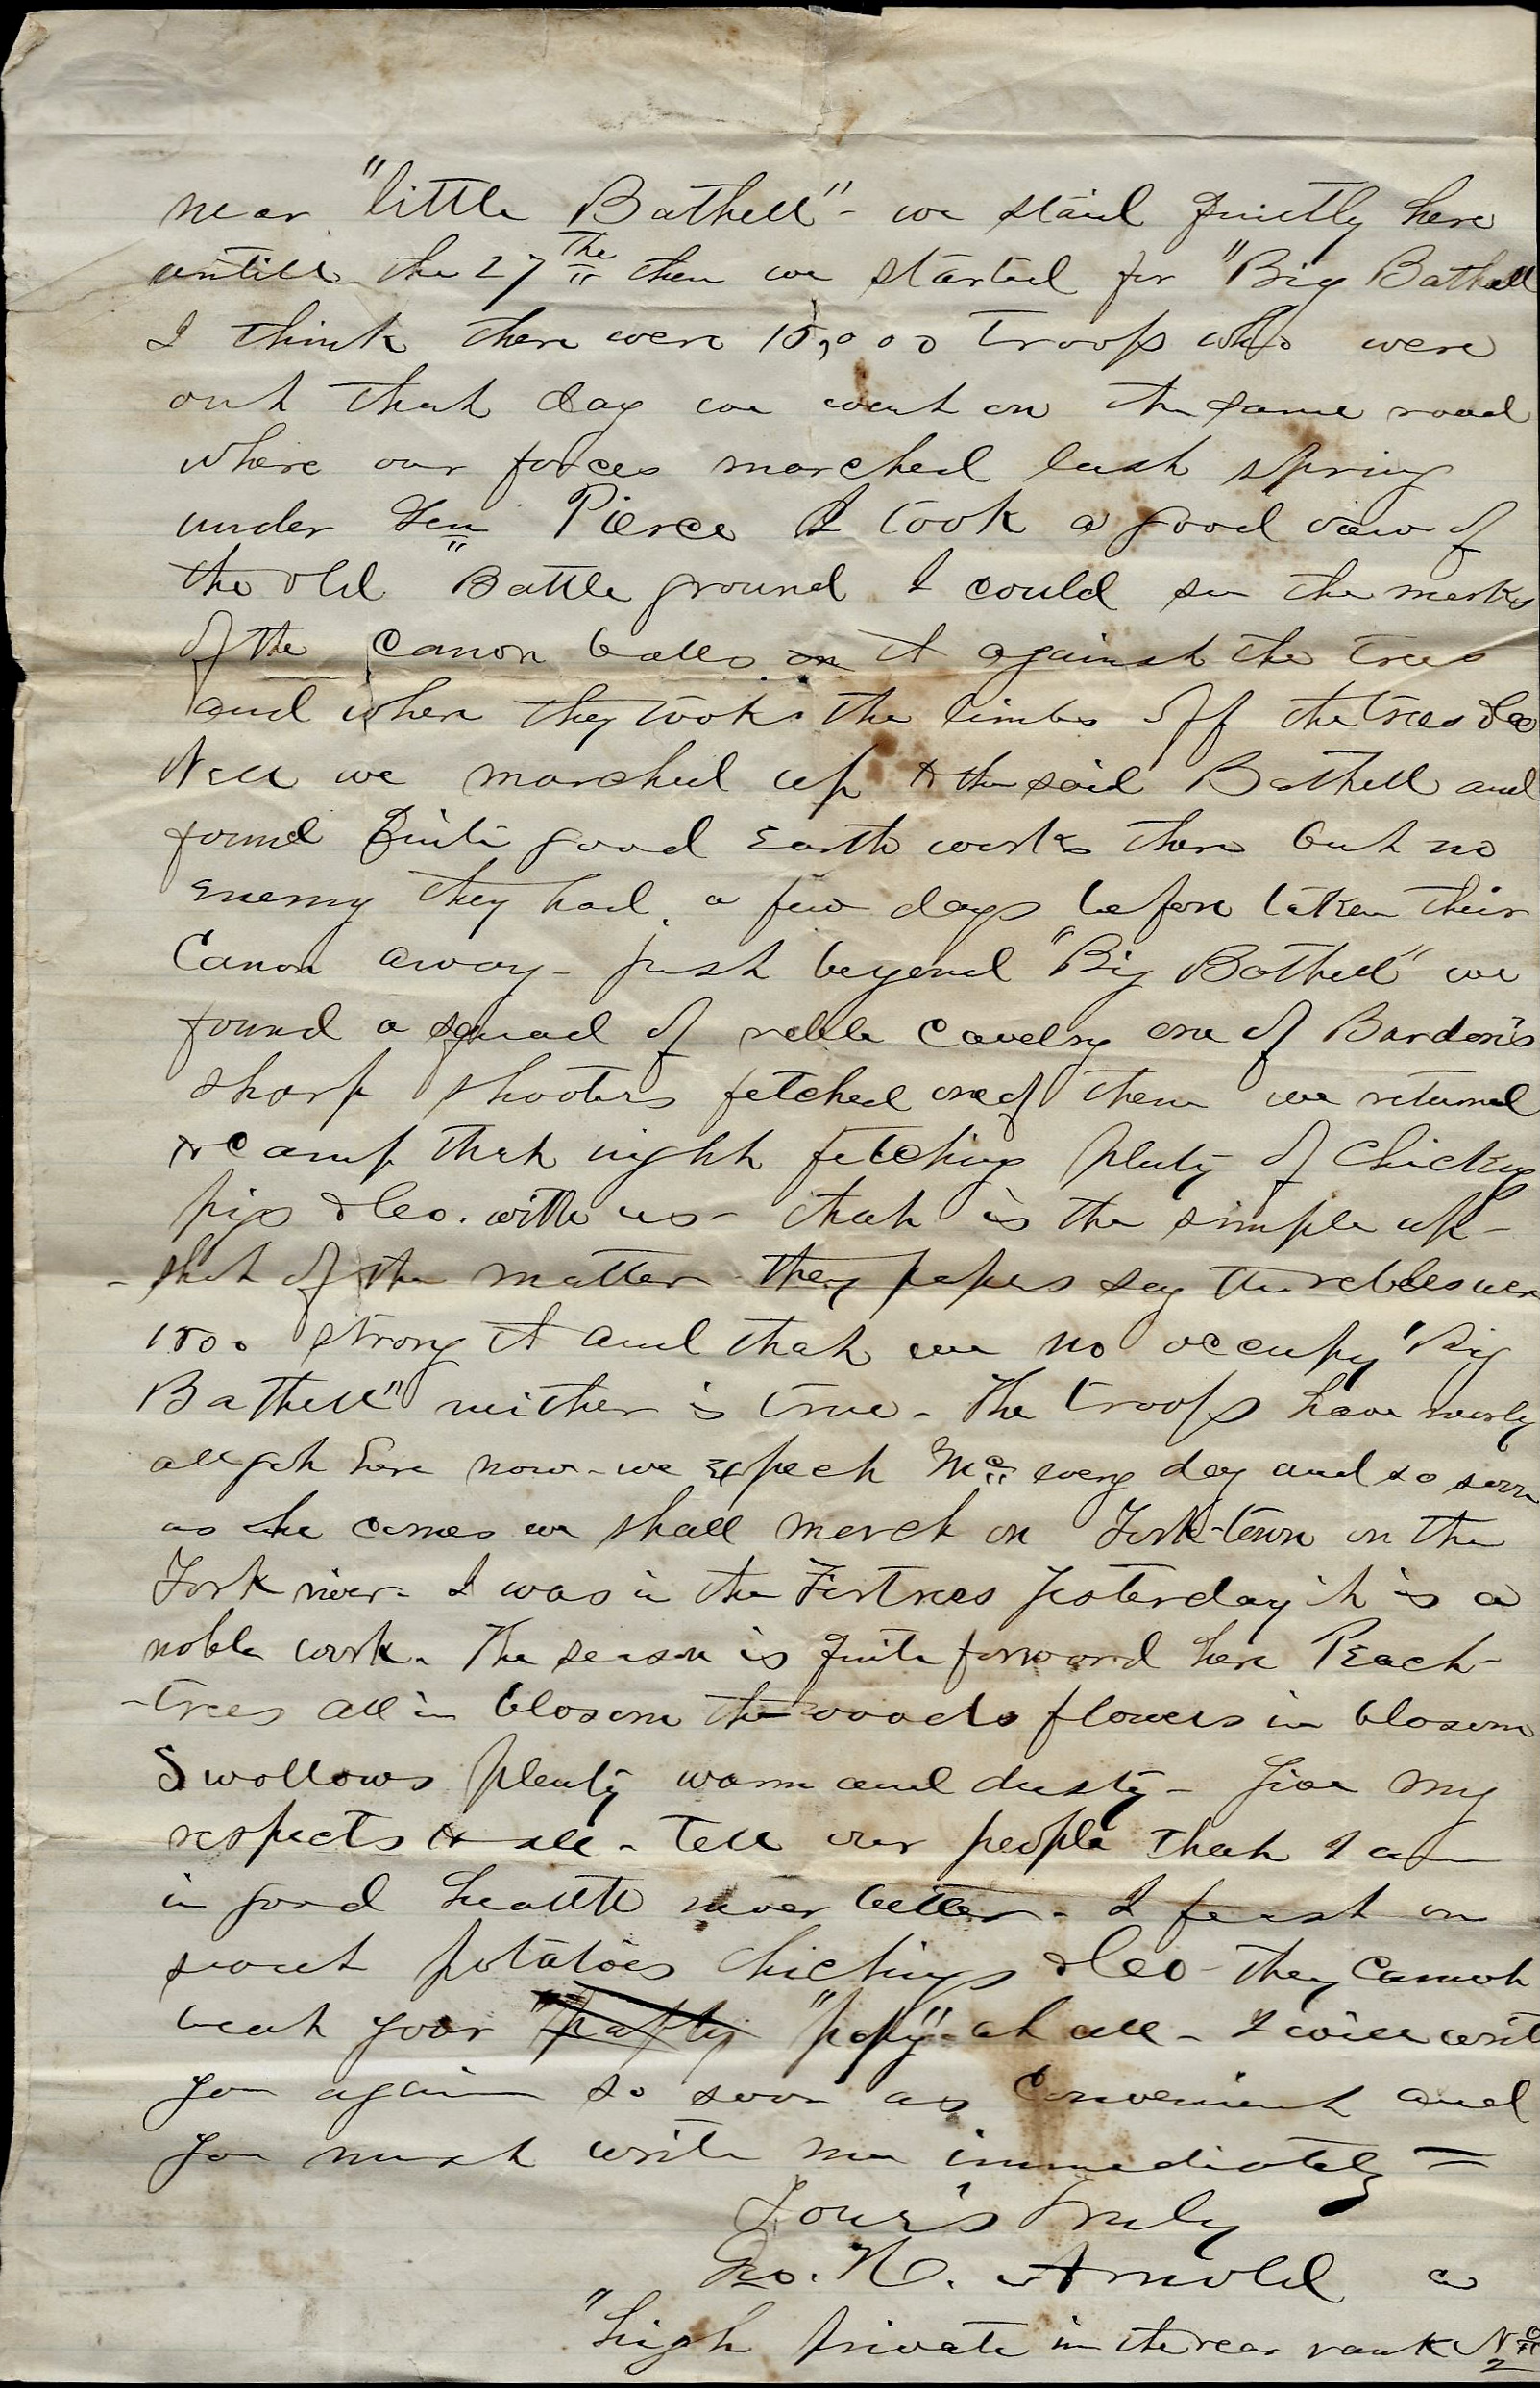 near "little Bathell" - we staid quietly here
untill the 27The then we started for "Big Bathell"
I think there were 15,000 troops who were
out that day we went on the same road
where our forces marched last spring
under Gen Pierce I took a good view of
the old "Battle ground I could see the marks
of the canon balls on it against the trees
and where they took the limbs off the trees &co
Well we marched up to the said Bathell and
found quite good earth works there but no
enemy they had a few days before taken their
Canon away - just beyond "Big Bathell" we
found a squad of reble cavelry one of Burdon's
sharp shooters fetched one of them we returned
to camp that night fetching plenty of chickings
pigs &co. with us - that is the simple up-
-shot of the matter they papers say the rebbles were
1500 strong and that we no occupy "Big
Bathell" neither is true - The troops have nearly
all got here now - we expect Mc every day and so soon
as he comes we shall march on York-town on the
York river - I was in the Fortress yesterday it is a
noble work. The season is quite forward here Peach-
-trees all in blosom the woods flowers in blosom
Swollows plenty warm and dusty - Give my
respects to all - tell our people that I am
in good health never better - I feast on
sweet potatoes chickings &co - they cannot
beat your "popy" at all - I will write
you again so soon as convenient and
you must write me immediately =
Your's Truly
Geo. N. Arnold a
"high private in the rear rank No 2